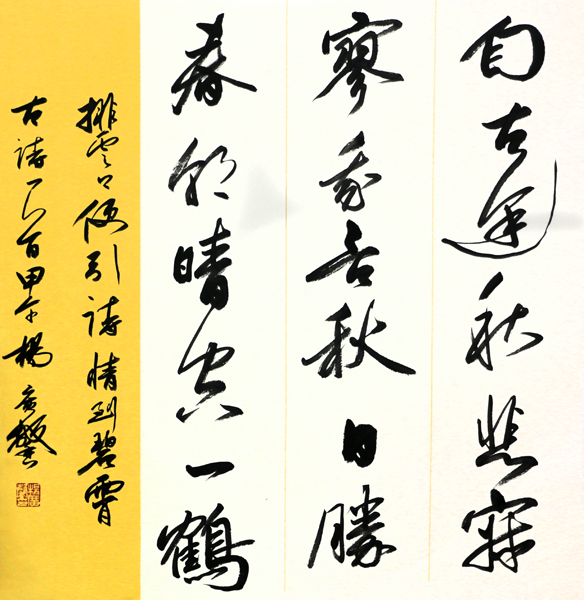 自古逢秋悲寂
寥我言秋日勝
春朝晴空一鶴
排雲上便引詩情到碧霄
古詩一首甲午楊廣馨